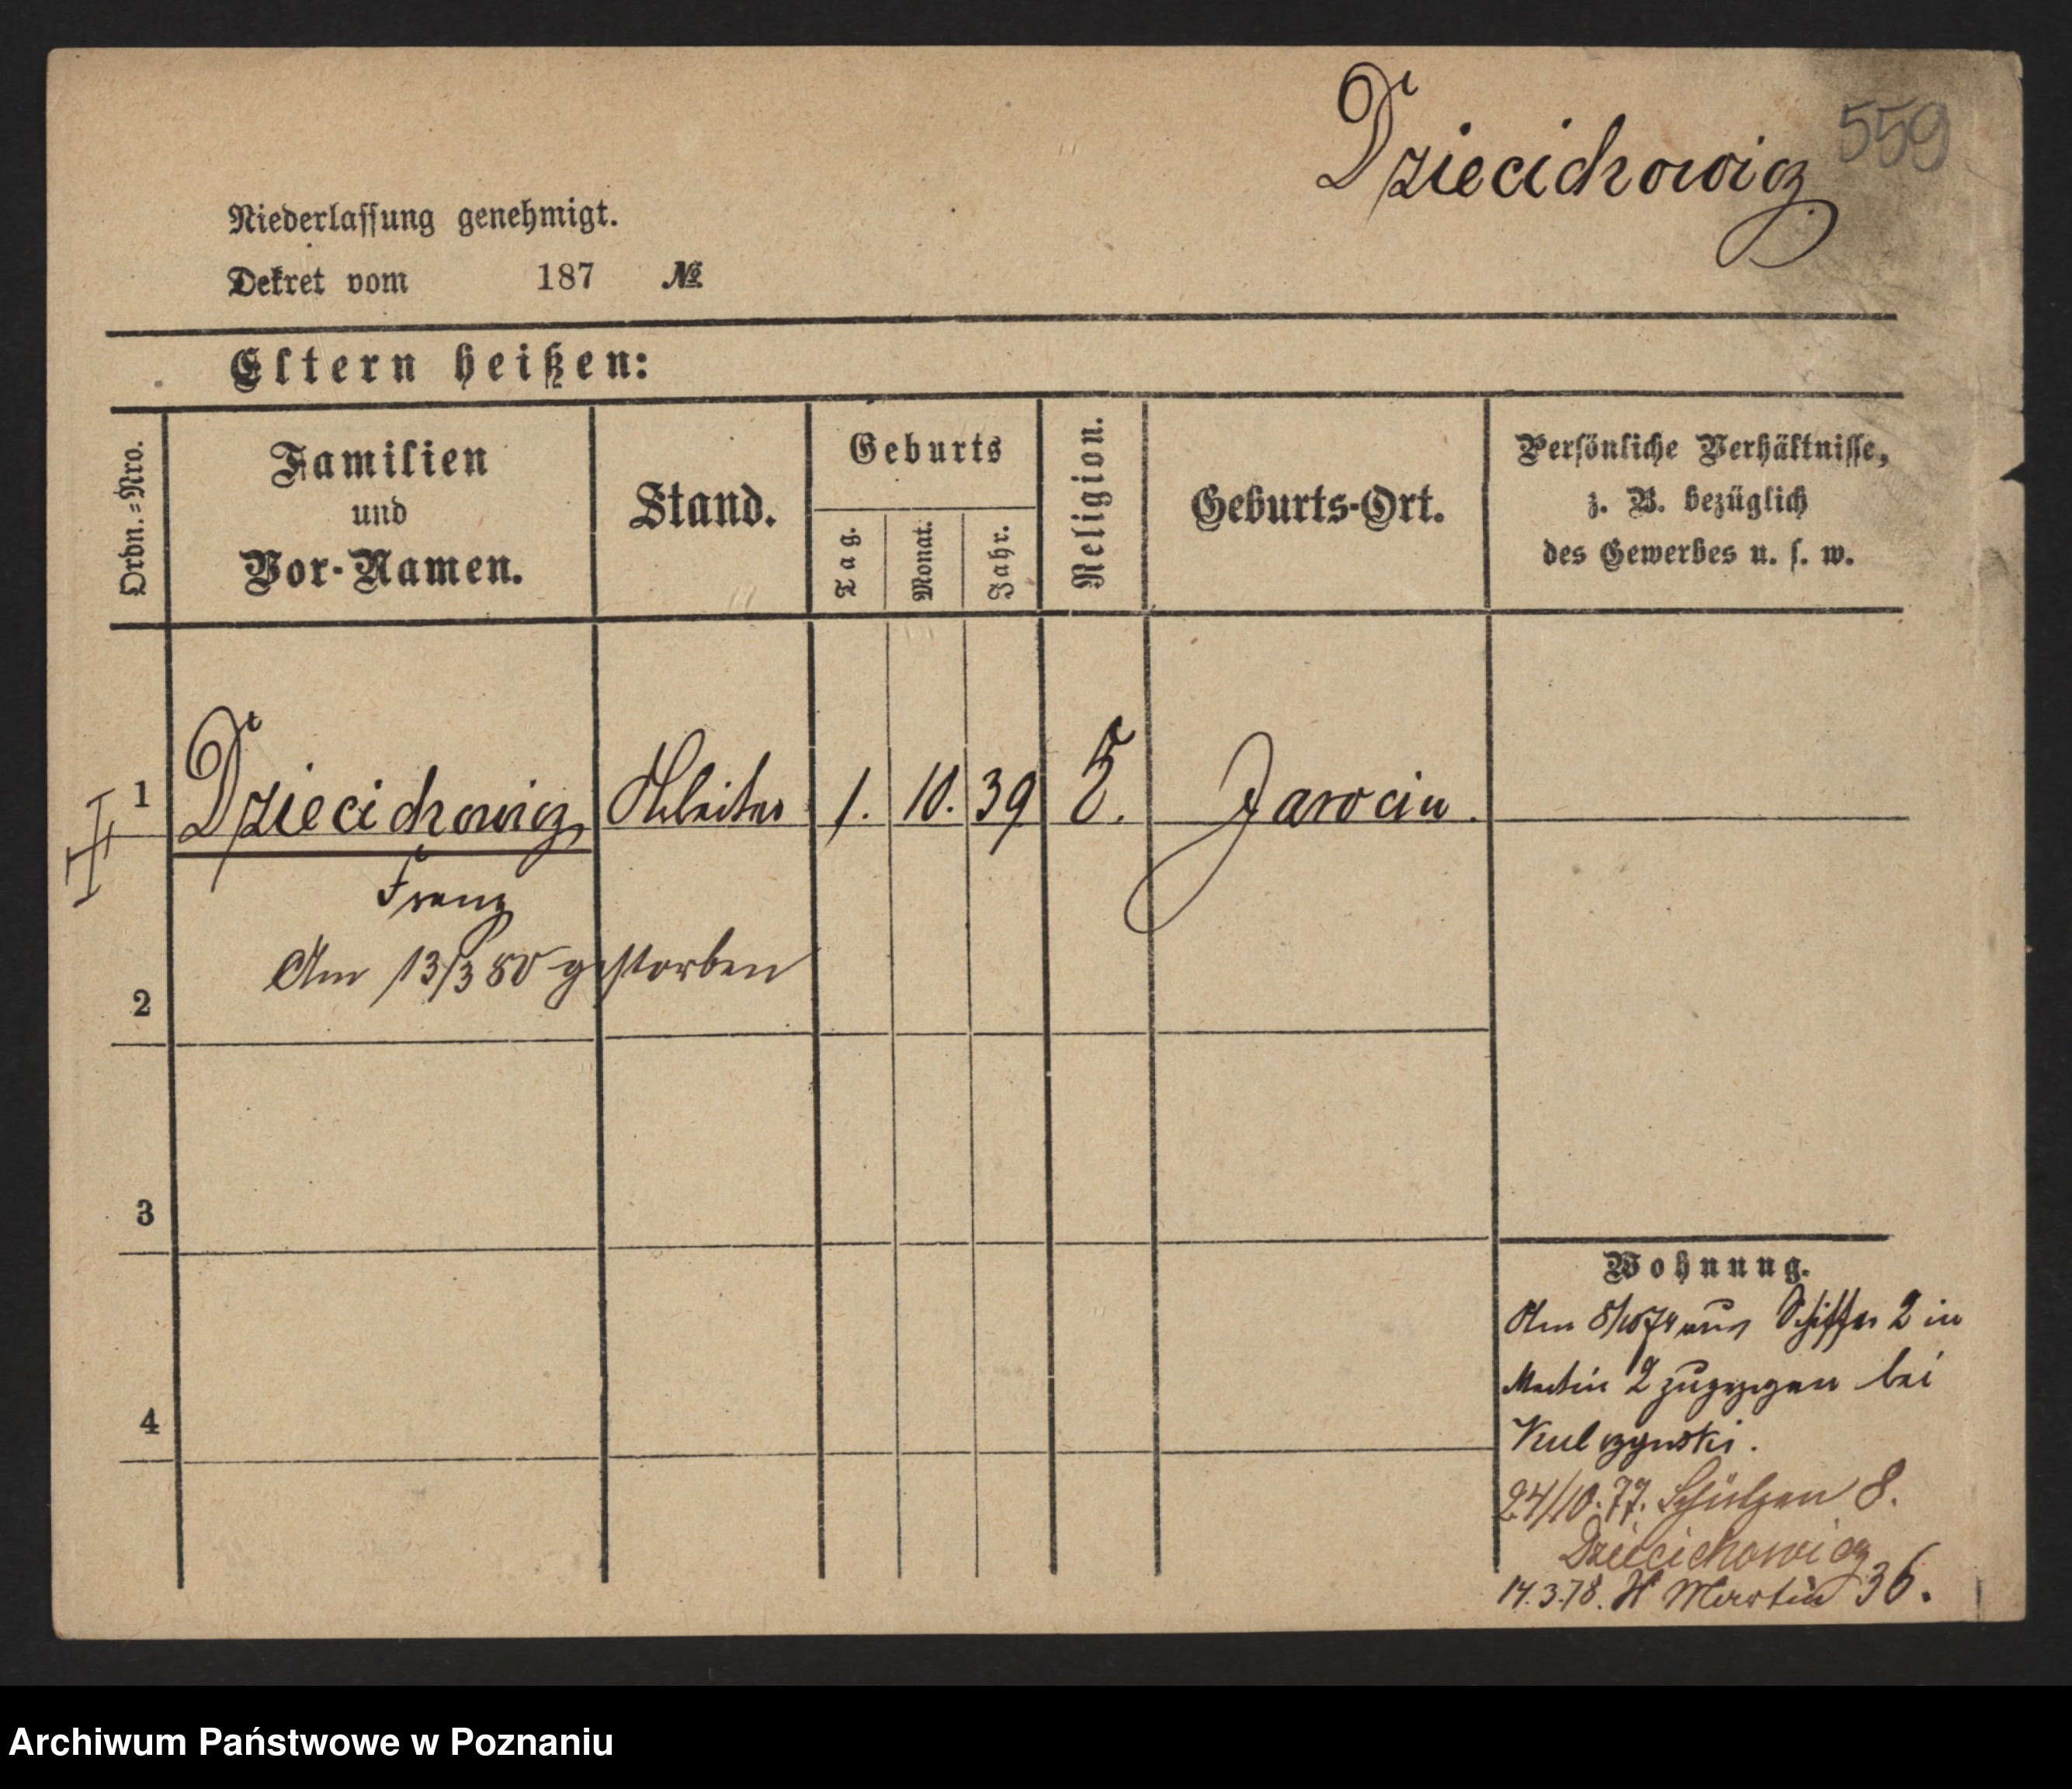 559
Dziecichowicz
Niederlassung genehmigt.
Dekret vom 187 №
Eltern heißen:
Ordn.-Nro.
Familien
und
Vor-Namen.
Stand.
Geburts
Tag.
Monat.
Jahr.
Religion.
Geburts-Ort.
Persönliche Verhältnisse,
z. B. bezüglich
des Gewerbes u. s. w.
1 Dziecichowicz Arbeiter 1. 10. 39 Jarocin.
Franz
Am 13/3 80 gestorben
2
3
4
Wohnung.
Am 8/10 74 aus Schiffer 2 in
Martin 2 zugezogen bei
Kulczynski.
24/10. 77. Schützen 8.
Dziecichowicz
14.3.78. St Martin 36.
Archiwum Państwowe w Poznaniu